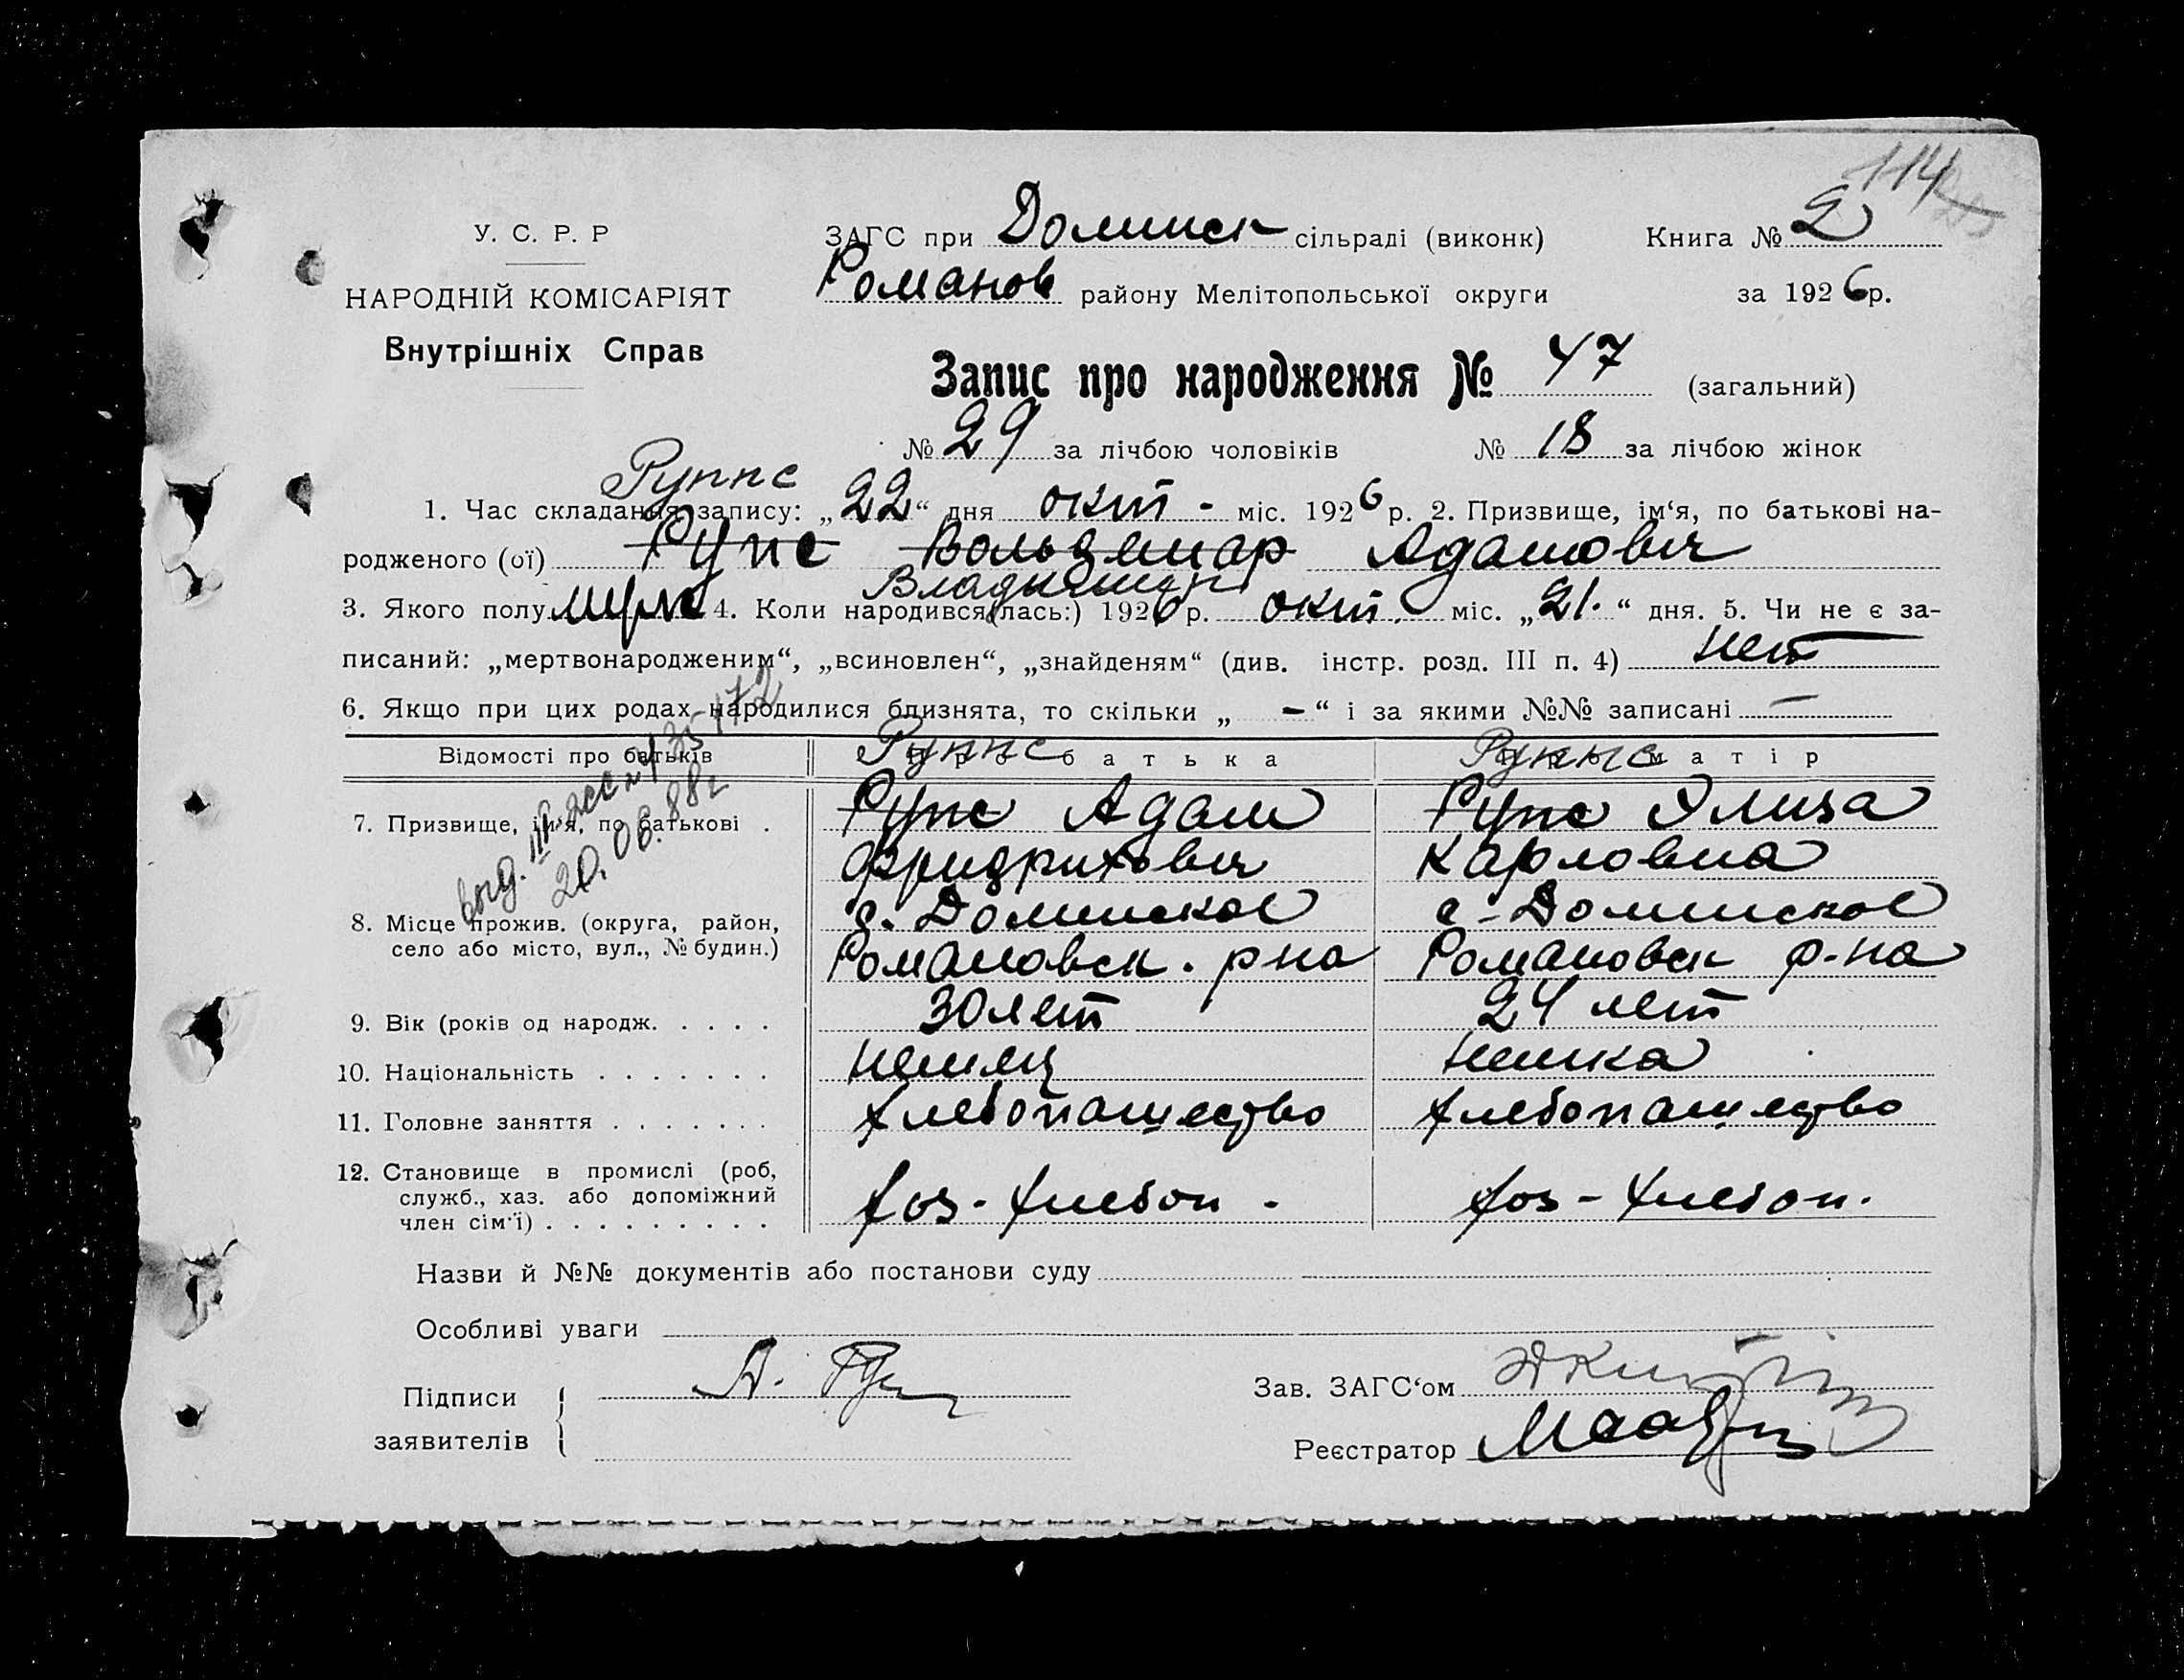 114
У. С. Р. Р
ЗАГС при Долинск сільраді (виконк)
Книга № 2
НАРОДНІЙ КОМІСАРІЯТ
Романов району Мелітопольської округи
за 1926р.
Внутрішніх Справ
Запис про народження № 47 (загальний)
№ 29 за лічбою чоловіків № 18 за лічбою жінок
Руппс
1. Час складання запису: „22“ дня окт - міс. 1926 р. 2. Призвище, ім‘я, по батькові на-
родженого (ої) Рупс Вольдемар Адамович
Владимир
3. Якого полу муж 4. Коли народився(лась:) 1926 р. окт. міс. „21.“ дня. 5. Чи не є за-
писаний: „мертвонародженим“, „всиновлен“, „знайденям“ (див. інстр. розд. III п. 4) нет
6. Якщо при цих родах народилися близнята, то скільки „ - “ і за якими №№ записані -
Руппс Руппс
Відомості про батьків Про батька Про матір
выд.
20.06.88г
7. Призвище, ім‘я, по батькові . Рупс Адам Рупс Элиза
Фридрихович Карловна
8. Місце прожив. (округа, район, с. Долинское с-Долинское
село або місто, вул., № будин.) Романовск. рна Романовск р-на
9. Вік (років од народж. . . . . 30 лет 24 лет
10. Національність . . . . . . . немец немка
11. Головне заняття . . . . . . . хлебопашество хлебопашество
12. Становище в промислі (роб,
служб., хаз. або допоміжний хоз. хлебоп - хоз - хлебоп.
член сім‘ї) . . . . . . . . .
Назви й №№ документів або постанови суду
Особливі уваги
Підписи А.
заявителів
Зав. ЗАГС‘ом
Реєстратор